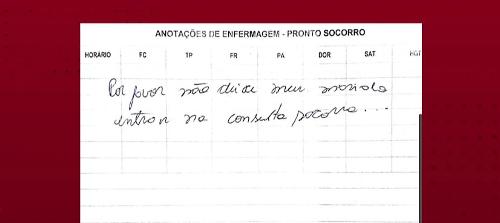 ANOTAÇÕES DE ENFERMAGEM - PRONTO SOCORRO
HORÁRIO FC TP FR PA DOR SAT HGT
Por favor não deixe meu marido
entrar na consulta socorro...